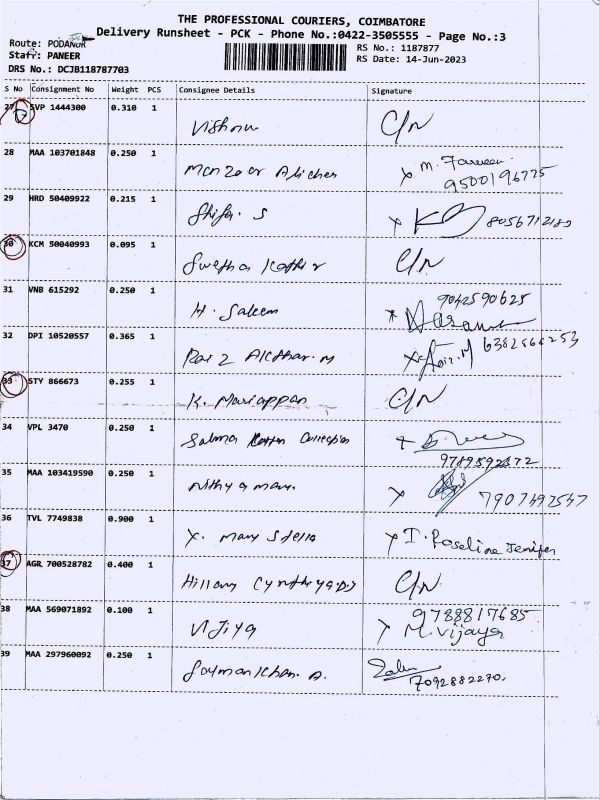 THE PROFESSIONAL COURIERS, COIMBATORE
Delivery Runsheet - PCK - Phone No.:0422-3505555 - Page No.:3
Route: PODANUR
RS No.: 1187877
Staff: PANEER
RS Date: 14-Jun-2023
DRS No.: DCJB118787703
S No Consignment No Weight PCS Consignee Details Signature
27 SVP 1444300 0.310 1 Vishnu C/N
28 MAA 103701848 0.250 1 M. Fareen
9500196775
29 HRD 50409922 0.215 1 Shifa. S
30 KCM 50040993 0.095 1 Swetha C/N
31 VNB 615292 0.250 1 H. Saleem 9042590625
32 DPI 10520557 0.365 1
33 STY 866673 0.255 1 K. Mariappan C/N
34 VPL 3470 0.250 1 Salma Cotton Collection
35 MAA 103419590 0.250 1 7907497547
36 TVL 7749838 0.900 1 X. Mary Stella I. Roseline Jenifer
37 AGR 700528782 0.400 1 C/N
38 MAA 569071892 0.100 1 Vijiya 9788817685
M. Vijaya
39 MAA 297960092 0.250 1
7092882270.